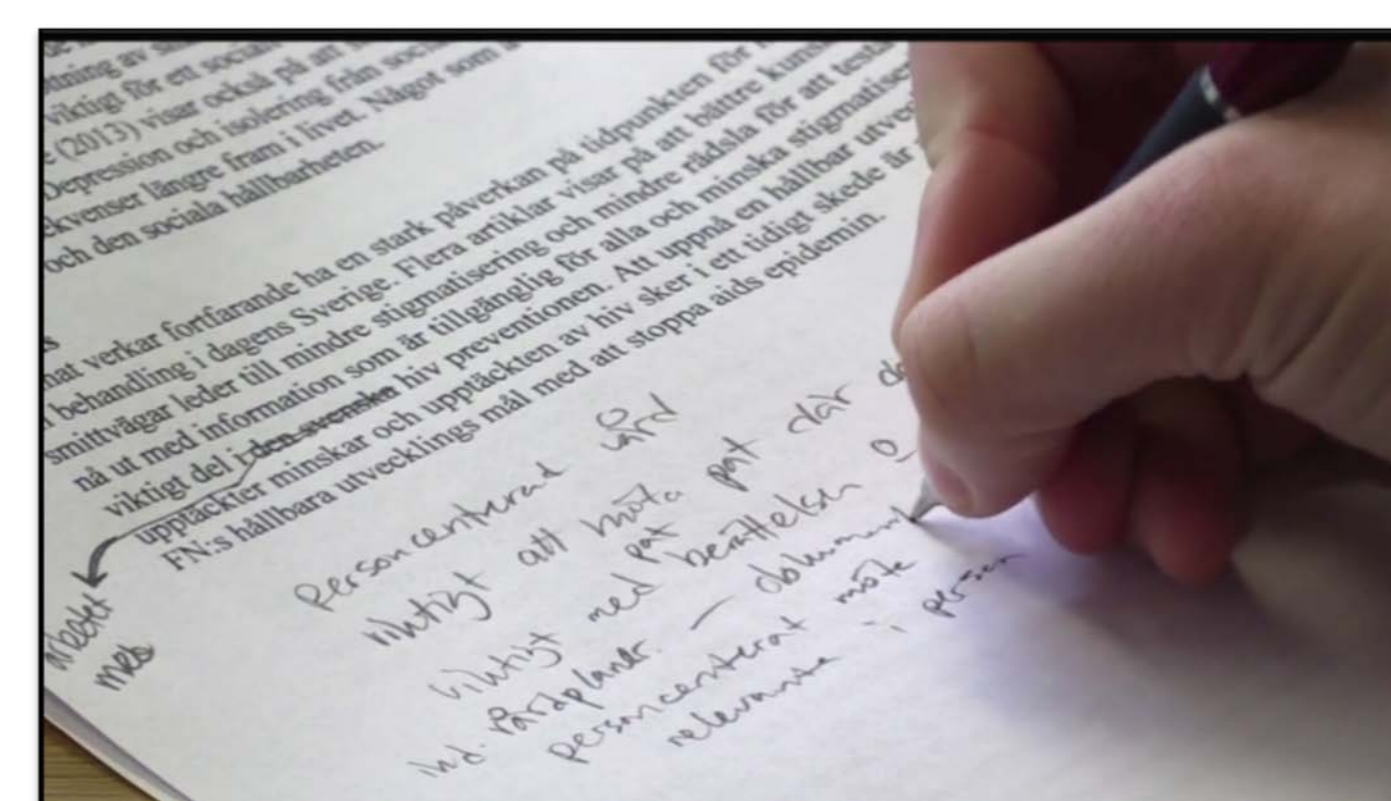 viktigt för ett
(2013) visar också på att
Depression och isolering från
längre fram i livet. Något som
och den sociala hållbarheten.
verkar fortfarande ha en stark påverkan på tidpunkten för
behandling i dagens Sverige. Flera artiklar visar på att bättre
smittvägar leder till mindre stigmatisering och mindre rädsla för att
nå ut med information som är tillgänglig för alla och minska
viktigt del i den svenska hiv preventionen. Att uppnå en hållbar
upptäckter minskar och upptäckten av hiv sker i ett tidigt skede är
FN:s hållbara utvecklings mål med att stoppa aids epidemin.
arbetet
med
Personcenterad vård
viktigt att möta pat där
pat
viktigt med berättelsen
ind. vårdplaner. –
personcenterat möte
relevanta i person